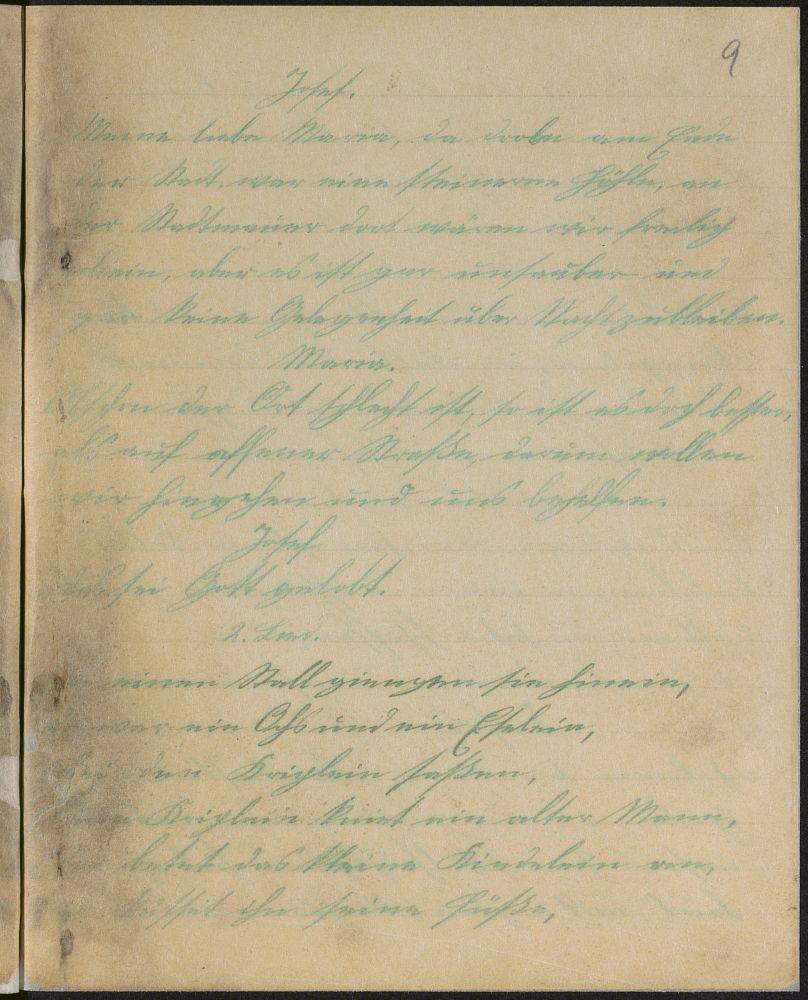 9
Josef.
Meine liebe Maria, da drobn am Ende
der Stadt, war eine steinerne Höhle, an
der Stadtmauer dort wären wir freilig
allein, aber es ist gar unsauber und
gar keine Gelegenheit über Nacht zubleiben.
Maria.
Obschon der Ort schlecht ist, so ist es doch besser,
als auf offener Straße, darum wollen
wir hingehen und uns behelfen.
Josef
das sei Gott gelobt.
2. Lied.
einen Stall giengen sie hinein,
war ein Ochs und ein Eselein,
bei den Kriplein saßen,
Kriplein kniet ein alter Mann,
betet das kleine Kindelein an,
küsset ihm seine Füße,